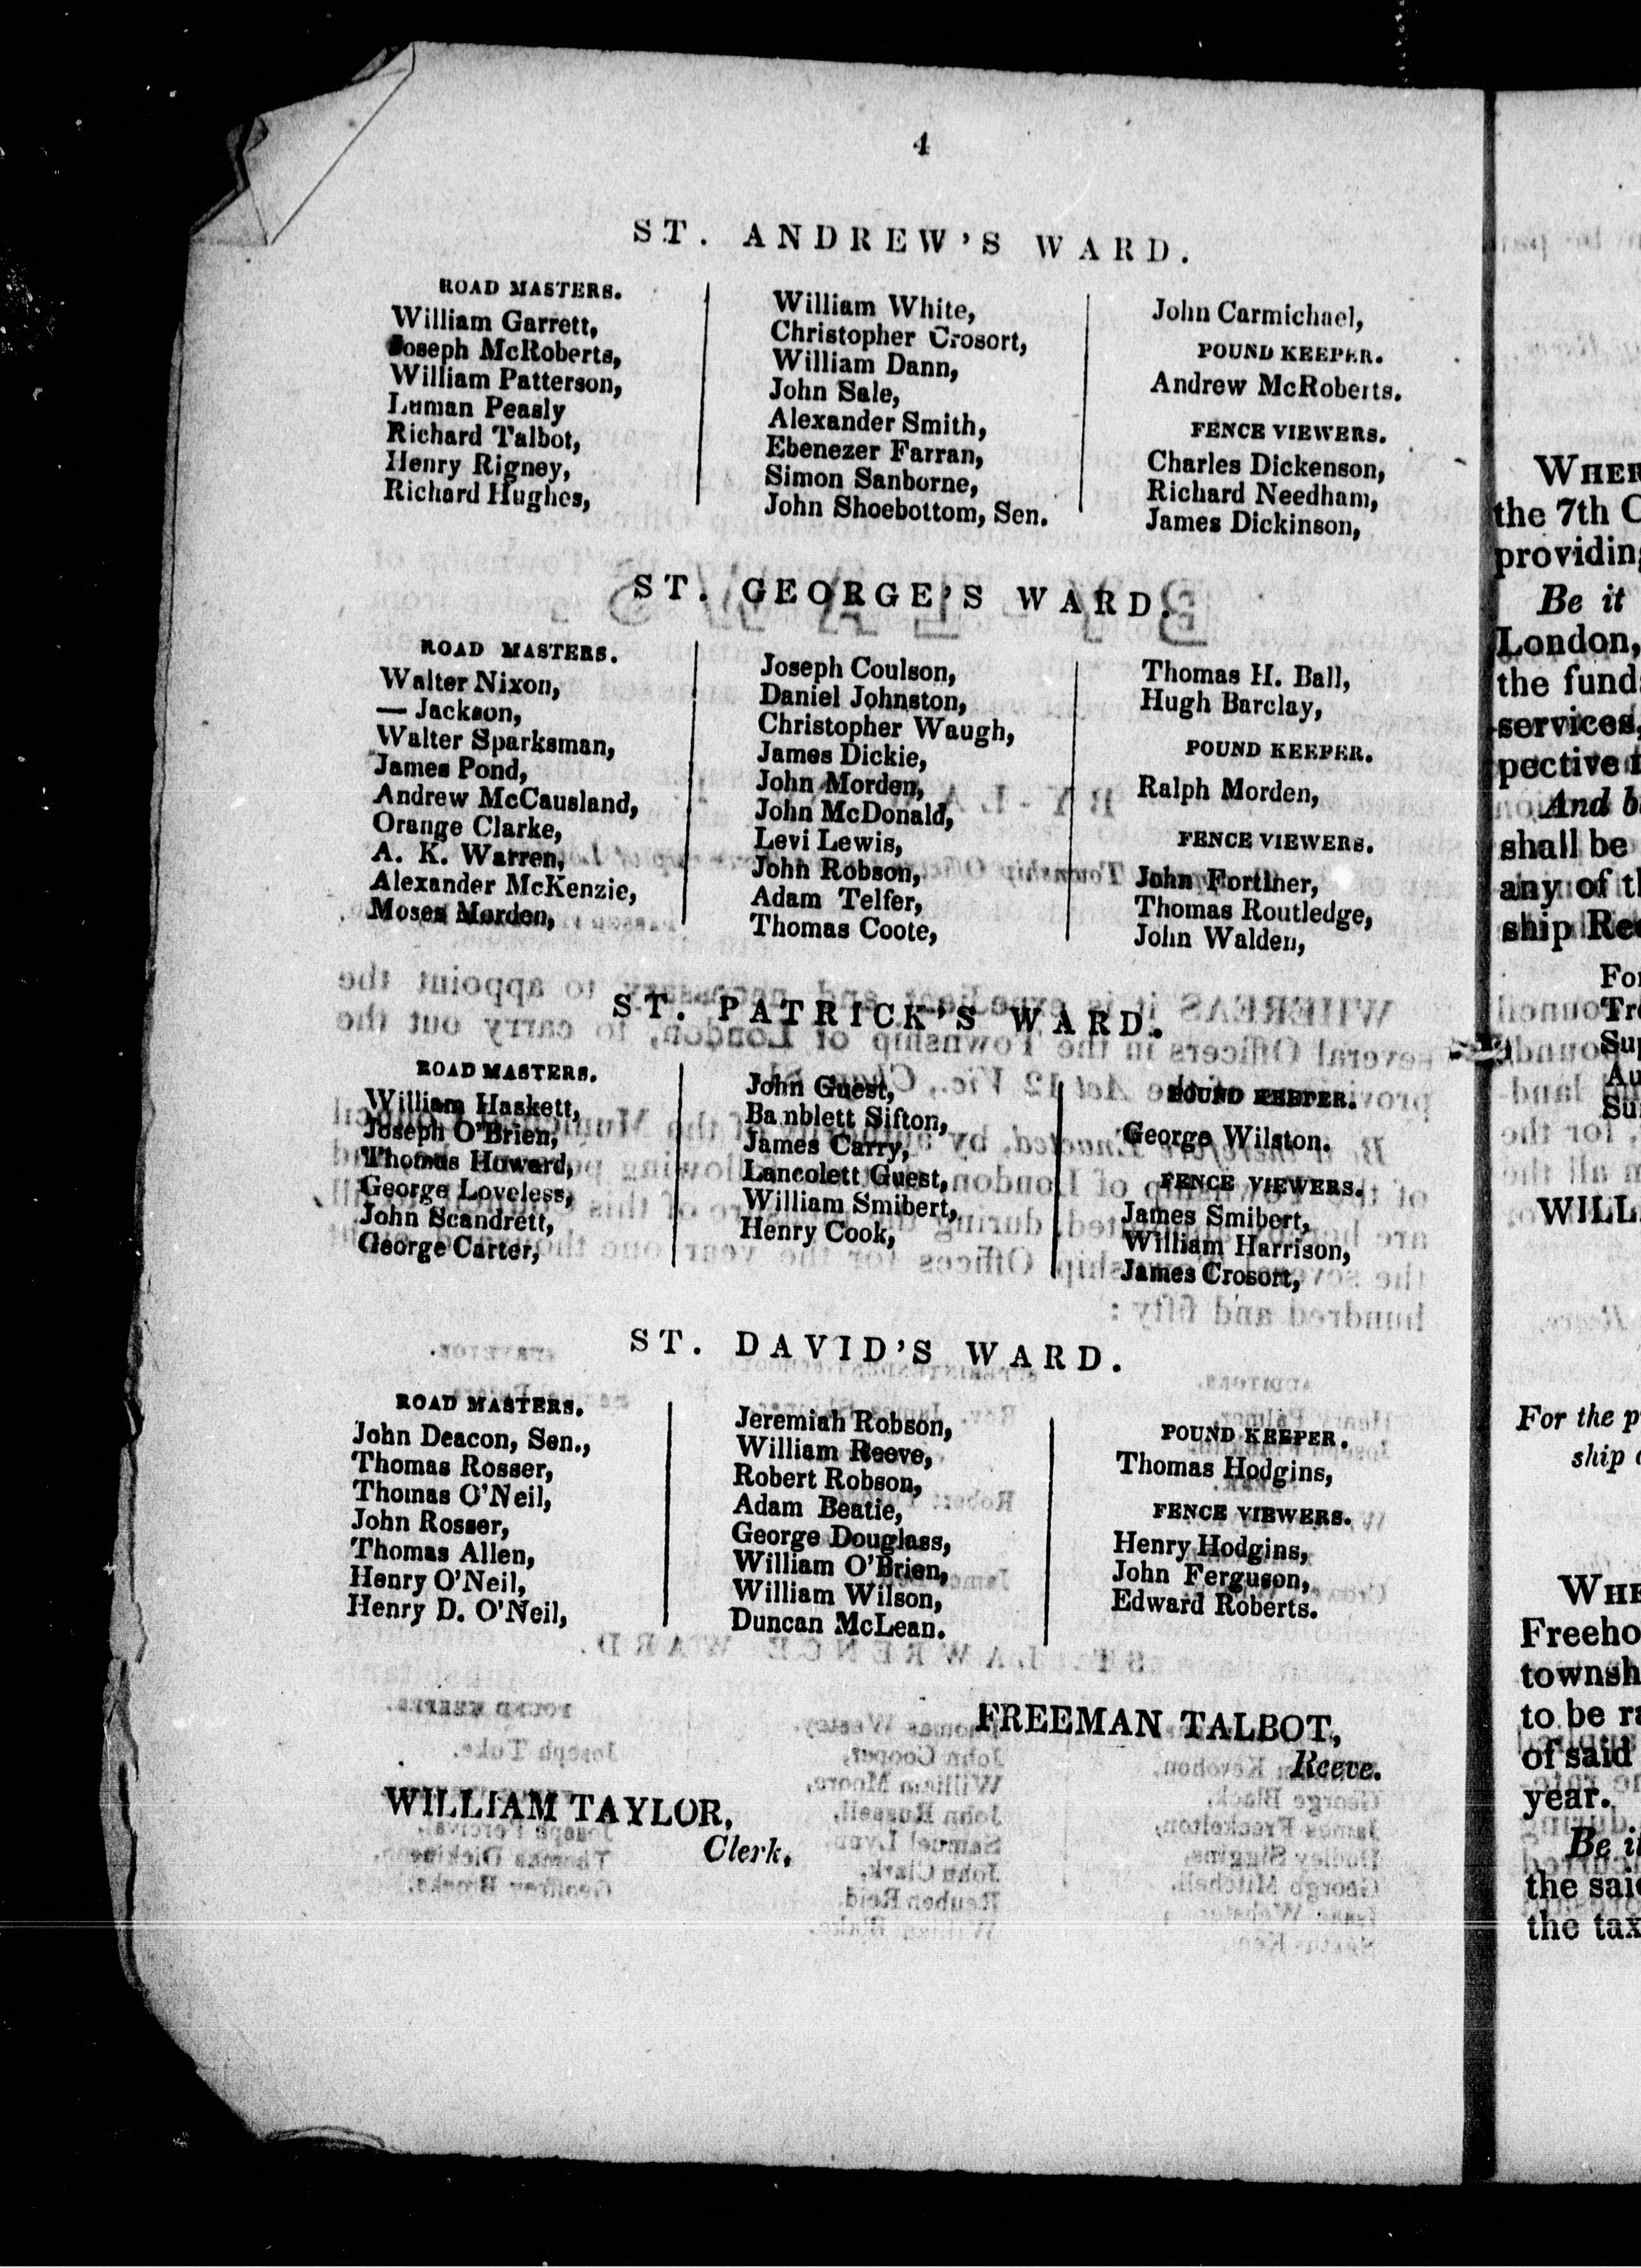 4
ST. ANDREW'S WARD.
ROAD MASTERS.
William Garrett,
Joseph McRoberts,
William Patterson,
Luman Peasly
Richard Talbot,
Henry Rigney,
Richard Hughes,
William White,
Christopher Crosort,
William Dann,
John Sale,
Alexander Smith,
Ebenezer Farran,
Simon Sanborne,
John Shoebottom, Sen.
John Carmichael,
POUND KEEPER.
Andrew McRoberts.
FENCE VIEWERS.
Charles Dickenson,
Richard Needham,
James Dickinson,
ST. GEORGE'S WARD.
ROAD MASTERS.
Walter Nixon,
— Jackson,
Walter Sparksman,
James Pond,
Andrew McCausland,
Orange Clarke,
A. K. Warren,
Alexander McKenzie,
Moses Morden,
Joseph Coulson,
Daniel Johnston,
Christopher Waugh,
James Dickie,
John Morden,
John McDonald,
Levi Lewis,
John Robson,
Adam Telfer,
Thomas Coote,
Thomas H. Ball,
Hugh Barclay,
POUND KEEPER.
Ralph Morden,
FENCE VIEWERS.
John Fortner,
Thomas Routledge,
John Walden,
ST. PATRICK'S WARD.
ROAD MASTERS.
William Haskett,
Joseph O'Brien,
Thomas Howard,
George Loveless,
John Scandrett,
George Carter,
John Guest,
Bamblett Sifton,
James Carry,
Lancolett Guest,
William Smibert,
Henry Cook,
POUND KEEPER.
George Wilston.
FENCE VIEWERS.
James Smibert,
William Harrison,
James Crosort,
ST. DAVID'S WARD.
ROAD MASTERS.
John Deacon, Sen.,
Thomas Rosser,
Thomas O'Neil,
John Rosser,
Thomas Allen,
Henry O'Neil,
Henry D. O'Neil,
Jeremiah Robson,
William Reeve,
Robert Robson,
Adam Beatie,
George Douglass,
William O'Brien,
William Wilson,
Duncan McLean.
POUND KEEPER.
Thomas Hodgins,
FENCE VIEWERS.
Henry Hodgins,
John Ferguson,
Edward Roberts.
FREEMAN TALBOT,
Reeve.
WILLIAM TAYLOR,
Clerk,
the 7th
providing
Be it
London,
the fund
services,
pective
And b
shall be
any of t
ship
WILL
For the p
ship
Freeho
townsh
to be r
of said
year.
Be i
the sai
the tax